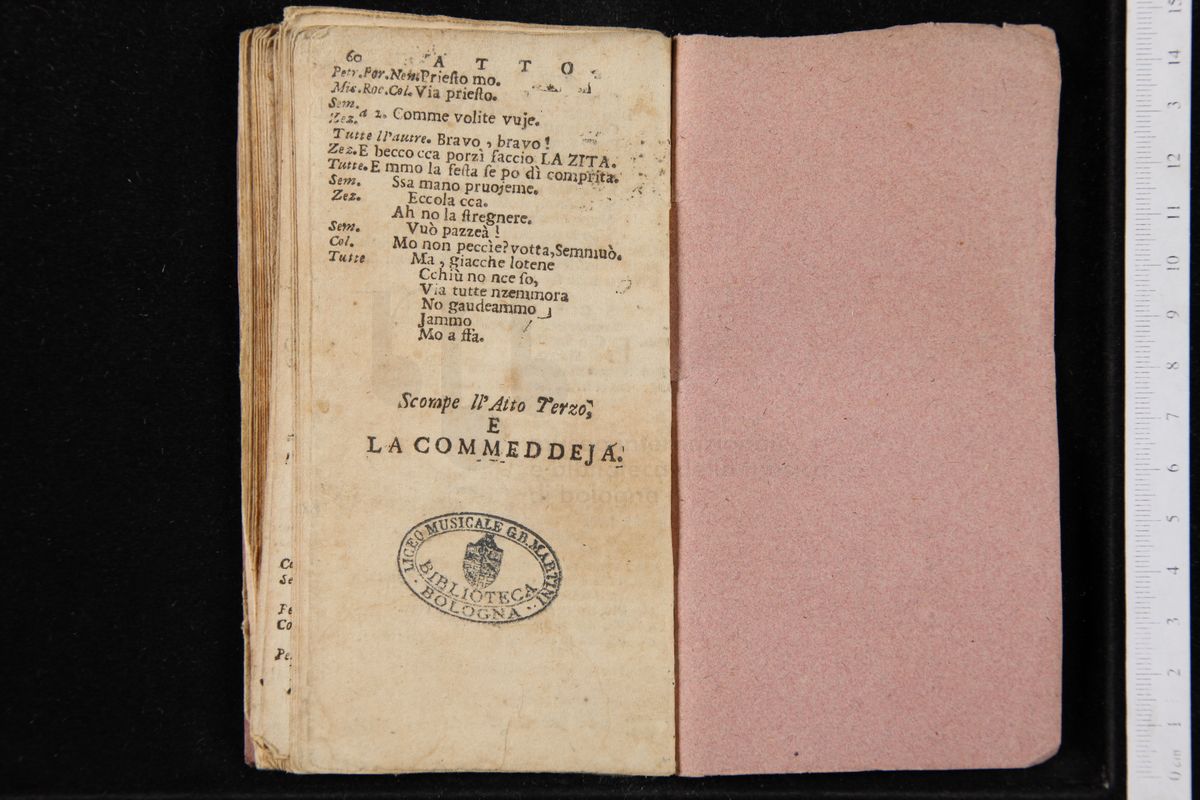 60 ATTO
Petr.Por.Nem.Prieſto mo.
Mic.Roc.Col.Via prieſto.
Sem.
Zez. a 2. Comme volite vuje.
Tutte ll'autre. Bravo, bravo!
Zez.E becco cca porzì faccio LA ZITA.
Tutte.E mmo la feſta ſe po dì comprita.
Sem. Ssa mano pruojeme.
Zez. Eccola cca.
Ah no la ſtregnere.
Sem. Vuò pazzeà!
Col. Mo non peccìe? votta, Semmuò.
Tutte Ma, giacche lotene
Cchiù no nce ſo,
Via tutte nzemmora
No gaudeammo
Jammo
Mo a ffa.
Scompe ll'Atto Terzo,
E
LA COMMEDDEJA.
LICEO MUSICALE G.B. MARTINI
BIBLIOTECA
BOLOGNA
Se
Pe
Co
Pe
15
14
3
12
11
10
9
8
7
6
5
4
3
2
1
0 cm